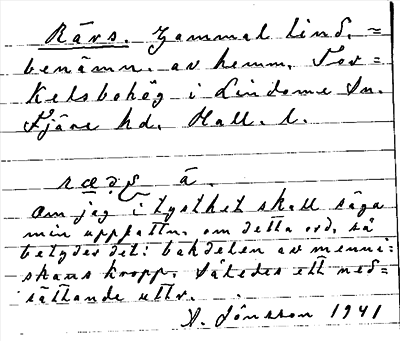 Rävs. Gammal lind. =
benämn. av hemm. Tor =
kelsbohög i Lindome Sn.
Fjäre hd. Hall. l.
ræ̱ṣ ā.
Om jag i tysthet skall säga
min uppfattn. om detta ord, så
betyder det: bakdelen av menni-
skans kropp. Således ett ned=
sättande uttr.
A. Jönsson 1941